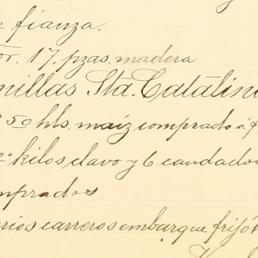 fianza.
17. pzas. madera
Sta. Catalin
50 hls. maiz comprado á
kilos clavo y 6. candado
mprados
rios carreros embarque frijo